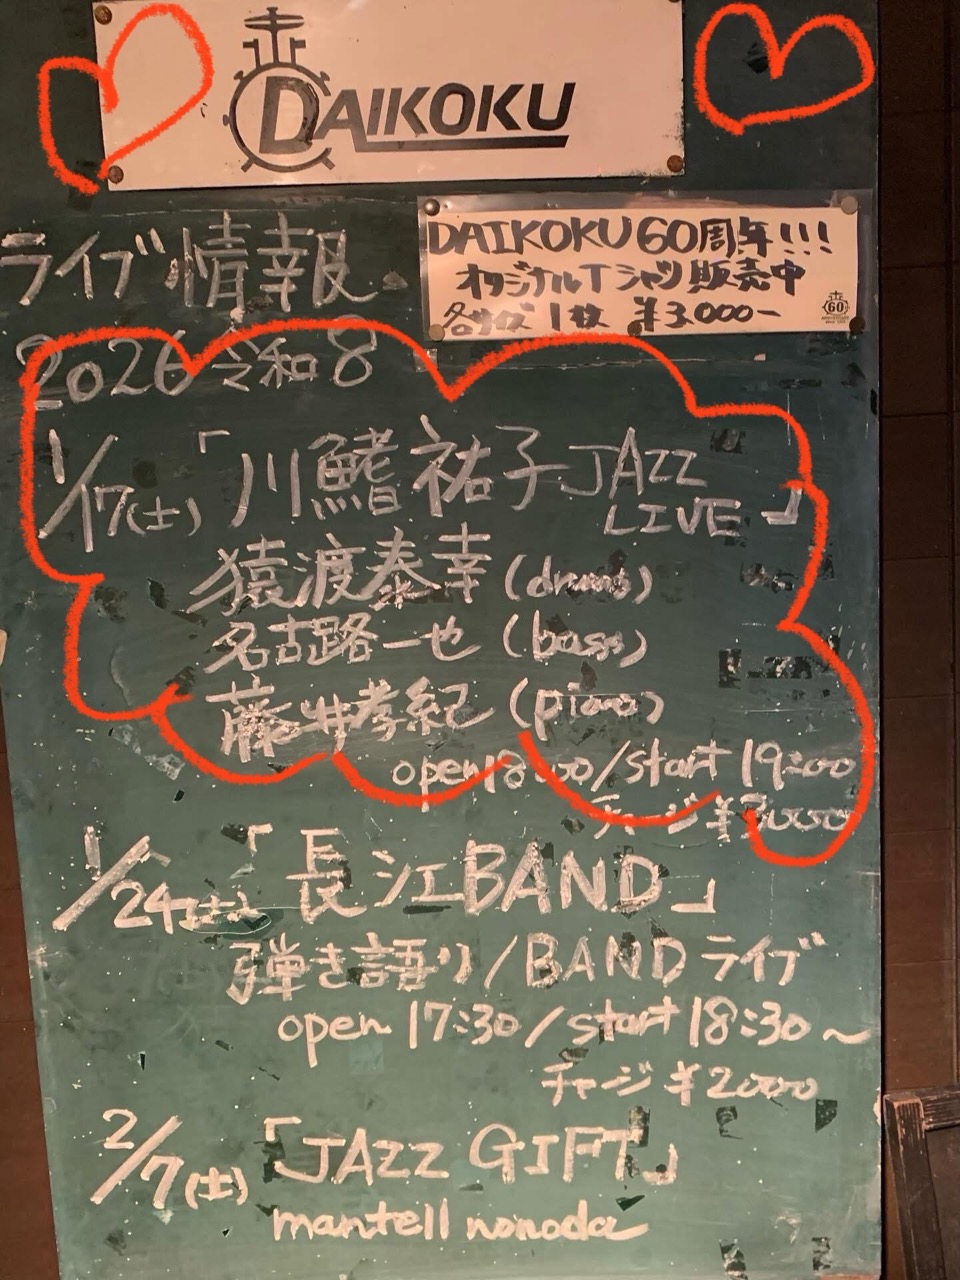 DAIKOKU
DAIKOKU 60周年!!!
オリジナルTシャツ販売中
各サイズ 1枚 ¥3,000-
ライブ情報
2026 令和8
1/17(土)「川鰭祐子JAZZ LIVE」
猿渡泰幸(drums)
名古路一也(bass)
藤井孝紀(piano)
open18:00/start 19:00
チャージ ¥3000
1/24(土)「長江BAND」
弾き語り/BANDライブ
open 17:30/start 18:30~
チャージ ¥2000
2/7(土)「JAZZ GIFT」
mantell nonoda